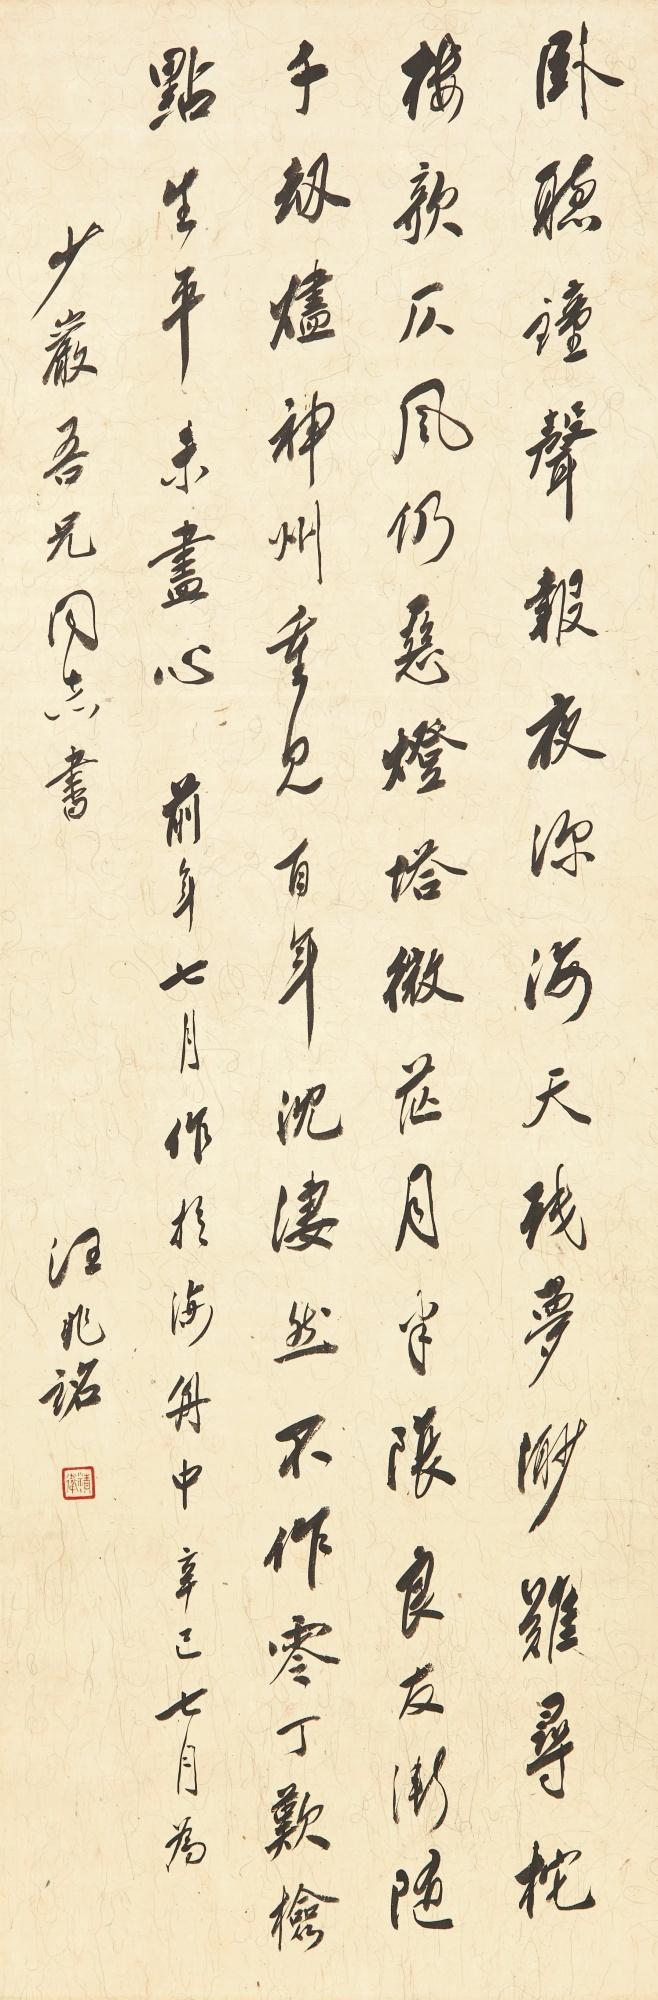 卧聽鐘聲報夜深海天殘夢渺難尋柁
樓欹仄風仍惡燈塔微茫月半陰良友漸隨
千劫燼神州重見百年沈淒然不作零丁歎檢
點生平未盡心 前年七月作於海舟中辛巳七月為
少巖吾兄同志書 汪兆銘
精衛